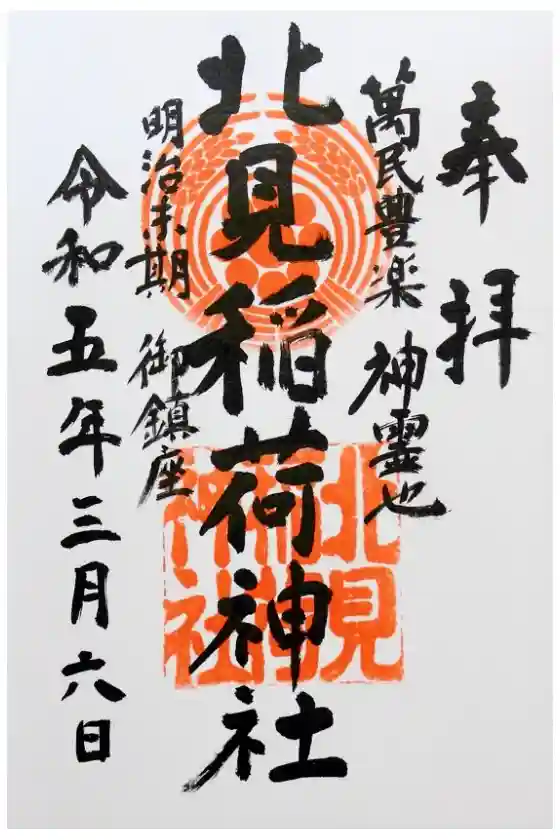 奉拝
萬民豊楽 神靈也
北見稲荷神社
北見稲荷神社
明治末期 御鎮座
令和五年三月六日